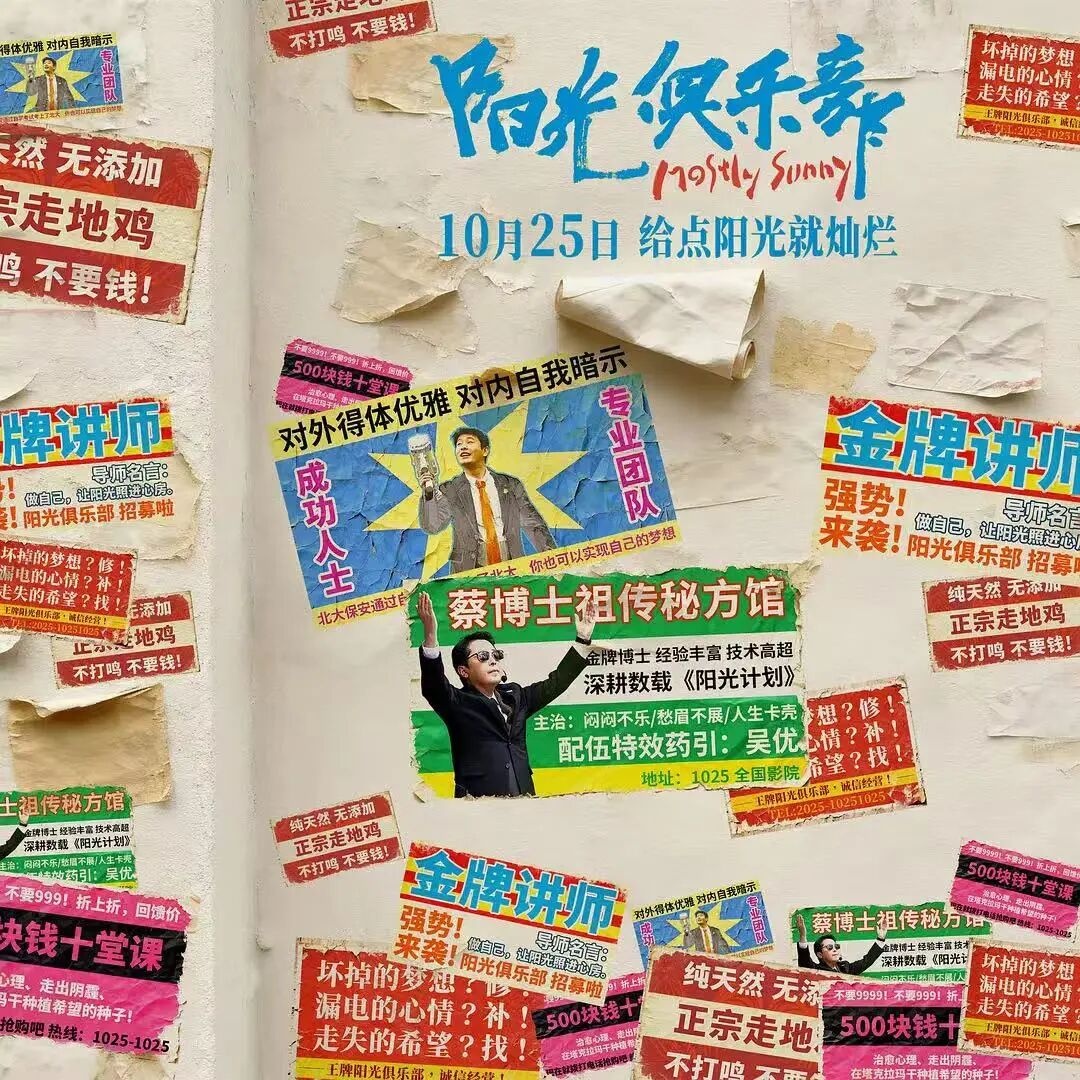 正宗走地鸡
不打鸣 不要钱!
得体优雅 对内自我暗示
专业团队
天然 无添加
宗走地鸡
鸣 不要钱!
阳光俱乐部
Mostly Sunny
10月25日 给点阳光就灿烂
坏掉的梦想
漏电的心情?
走失的希望?
王牌阳光俱乐部,诚信
TEL:2025-10251
不要9999! 不要999! 折上折,回馈价
500块钱十堂课
治愈心理、走出阴霾,
在塔克拉玛干种植希望的种子!
对外得体优雅 对内自我暗示
成功人士
专业团队
你也可以实现自己的梦想
北大保安通过自
牌讲师
导师名言:
做自己,让阳光照进心房。
阳光俱乐部 招募啦
金牌讲师
强势!
来袭!
导师名
做自己,让阳光照进心房
阳光俱乐部 招募
坏掉的梦想?修!
漏电的心情?补!
走失的希望?找!
王牌阳光俱乐部,诚信经营!
TEL:2025-10251025
添加
正宗走地鸡
不打鸣 不要钱!
纯天然 无添加
正宗走地鸡
不打鸣 不要钱!
蔡博士祖传秘方馆
金牌博士 经验丰富 技术高超
深耕数载《阳光计划》
主治:闷闷不乐/愁眉不展/人生卡壳
配伍特效药引:吴优
地址:1025 全国影院
梦想?修!
心情?补!
希望?找!
王牌阳光俱乐部,诚信经营!
TEL:2025-10251025
士祖传秘方馆
金牌博士 经验丰富 技术高超
深耕数载《阳光计划》
主治:闷闷不乐/愁眉不展/人生卡壳
配伍特效药引:吴优
不要999! 折上折,回馈价
块钱十堂课
心理、走出阴霾、
玛干种植希望的种子!
抢购吧 热线:1025-1025
纯天然 无添加
正宗走地鸡
不打鸣 不要钱!
金牌讲师
强势!
来袭!
导师名言:
做自己,让阳光照进心房。
阳光俱乐部 招募啦
对外得体优雅 对内自我暗示
成功
专业团队
蔡博士祖传秘方馆
金牌博士 经验丰富 技术高
深耕数载《阳光计
主治:闷闷不乐/愁眉不展/人
不要9999! 不要999! 折上折,回馈价
500块钱十堂课
治愈心理、走出阴霾,
在塔克拉玛干种植希望的种子!
热线:1025-1025
坏掉的梦想?修!
漏电的心情?补!
走失的希望?找!
王牌阳光俱乐部,诚信经营!
折上折
500块钱十
治愈心理、走出阴
在塔克拉玛干种植希望
纯天然 无添
正宗走地
不打鸣 不要
不要9999! 不要999! 折上
500块钱十
治愈心理、走出阴霾、
在塔克拉玛干种植希望的种
坏掉的梦想
漏电的心情?
走失的希望?
王牌阳光俱乐部,诚信
TEL:2025-10251